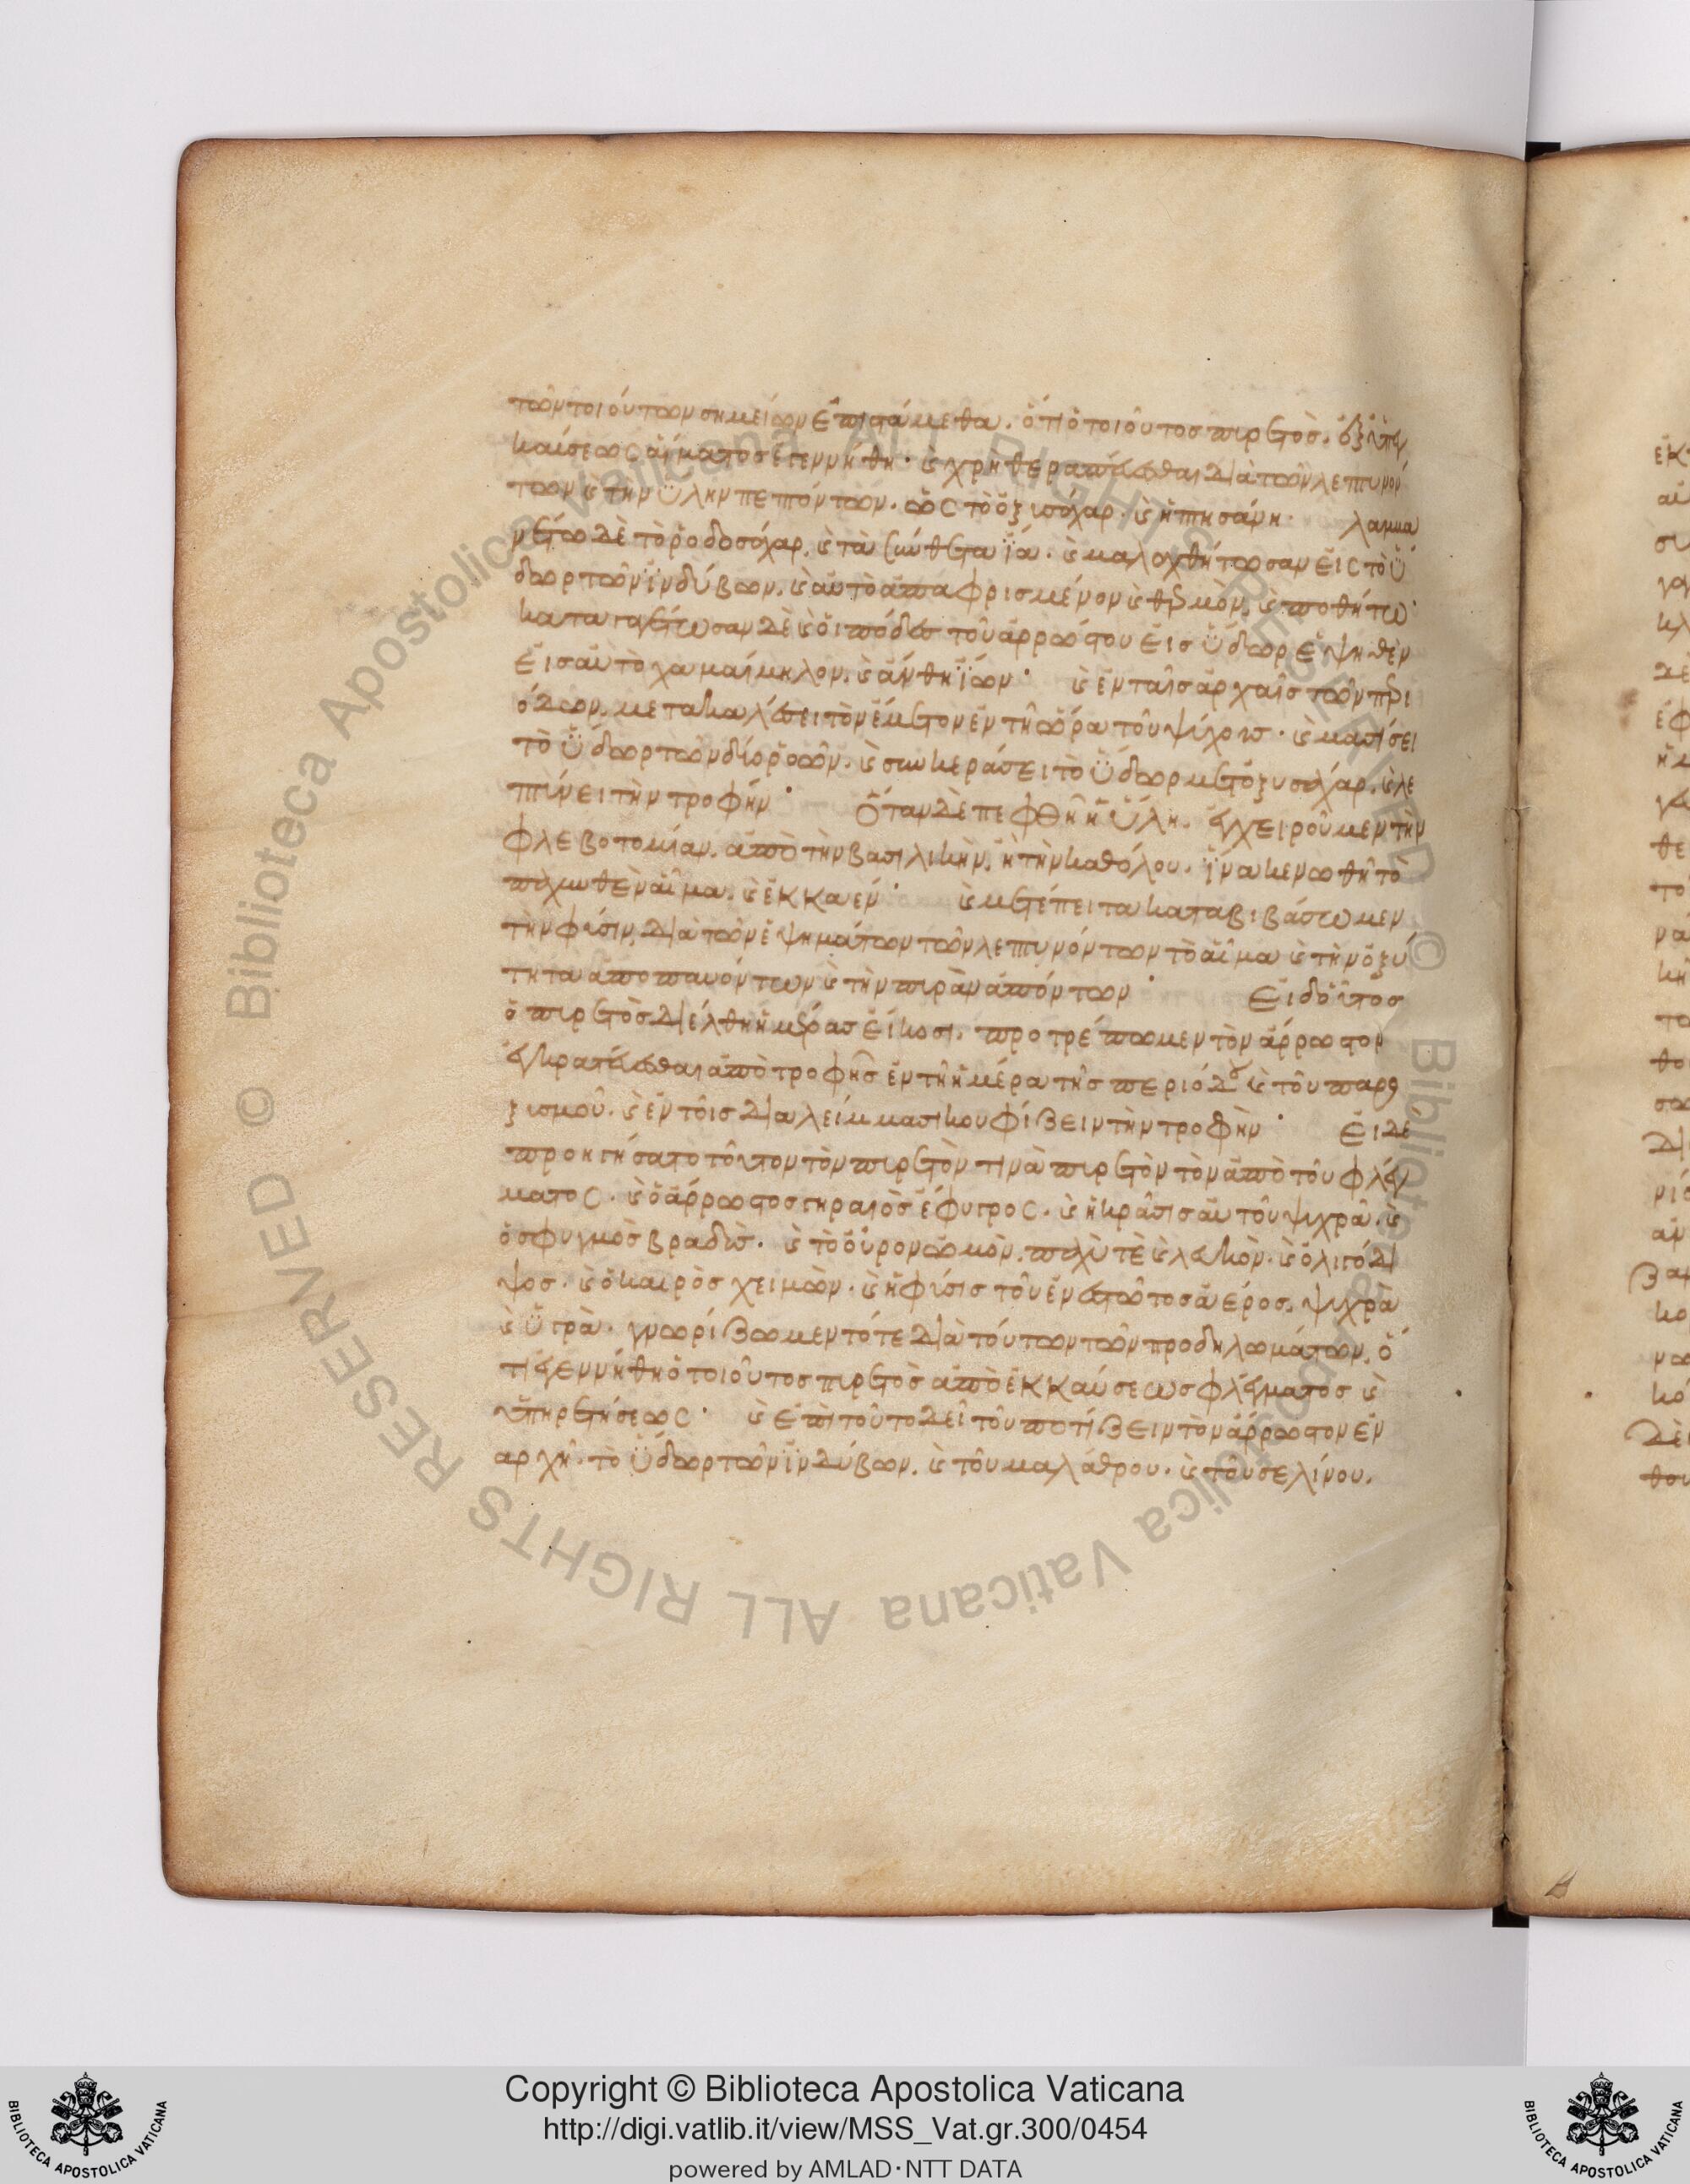 τῶν τοιούτων σημείων ἐπιστάμεθα. ὅτι ὁ τοιοῦτος πυρετὸς. ἐξ ὑπεκ
καύσεως αἵματος ἐγεννήθη· καὶ χρὴ θεραπεύεσθαι διὰ τῶν λεπτυνόν
των καὶ τὴν ὕλην πεπτόντων. ὡς τὸ ὀξυσάχαρ. καὶ ἡ πτησάνη. λαμμα
νέτω δὲ τὸ ῥοδοσάχαρ. καὶ τὰ σύνθετα ἴα. καὶ μαλαχθήτωσαν εἰς τὸ ὕ
δωρ τῶν ἰνδύβων. καὶ αὐτὸ ἀπαφρισμένον καὶ θερμὸν. καὶ ποθήτω·
καταντλείτωσαν δὲ καὶ οἱ πόδες τοῦ ἀρρώστου εἰς ὕδωρ ἑψηθὲν
εἰς αὐτὸ χαμαίμηλον. καὶ ἄνθη ἴων· καὶ ἐν ταῖς ἀρχαῖς τῶν περι
όδων. μετακαλέσει τὸν ἔμετον ἐν τῇ ὥρα τοῦ ψύχους. καὶ μασήσει
τὸ ὕδωρ τῶν διορρῶν. καὶ συγκεράσει τὸ ὕδωρ μετὰ ὀξυσάχαρ. καὶ λε
πτύνει τὴν τροφήν· Ὅταν δὲ πεφθῆ ἡ ὕλη. ἐγχειροῦμεν τὴν
φλεβοτομίαν. ἀπὸ τὴν βασιλικὴν. ἢ τὴν καθόλου. ἵνα κενωθῆ τὸ
παχυνθὲν αἷμα. καὶ ἐκκαέν· καὶ μετέπειτα καταβιβάσωμεν
τὴν φύσιν. διὰ τῶν ἑψημάτων τῶν λεπτυνόντων τὸ αἷμα καὶ τὴν ὀξύ
τητα ἀποπαυόντων καὶ τὴν πυρὰν ἁπτόντων· Εἰ δὲ οὗτος
ὁ πυρετὸς διέλθη ἡμέρας εἴκοσι. προτρέπωμεν τὸν ἄρρωστον
ἐγκρατεύεσθαι ἀπὸ τροφῆς ἐν τῆ ἡμέρα τῆς περιόδου καὶ τοῦ παρο
ξυσμοῦ. καὶ ἐν τοῖς διαλείμμασι κουφίζειν τὴν τροφὴν· Εἰ δὲ
προηγήσατο τοῦτον τὸν πυρετὸν τινὰ πυρετὸν τὸν ἀπὸ τοῦ φλέγ
ματος. καὶ ὁ ἄρρωστος γηραιὸς ἔφυγρος. καὶ ἡ κρᾶσις αὐτοῦ ψυχρὰ. καὶ
ὁ σφυγμὸς βραδὺς. καὶ τὸ οὖρον ὠμὸν. παχὺ τὲ καὶ λευκὸν. καὶ ὀλιγόδι
ψος. καὶ ὁ καιρὸς χειμὼν. καὶ ἡ φύσις τοῦ ἐνεστῶτος ἀέρος. ψυχρὰ
καὶ ὑγρὰ. γνωρίζωμεν τότε διὰ τούτων τῶν προδηλωμάτων. ὅ
τι ἐγεννήθη ὁ τοιοῦτος πυρετὸς ἀπὸ ἐκκαύσεως φλέγματος καὶ
ὑπηρετήσεως· καὶ ἐπὶ τοῦτο δεῖ τοῦ ποτίζειν τὸν ἄρρωστον ἐν
ἀρχῆ. τὸ ὕδωρ τῶν ἰνδύβων. καὶ τοῦ μαλάθρου. καὶ τοῦ σελίνου.
Copyright © Biblioteca Apostolica Vaticana
http://digi.vatlib.it/view/MSS_Vat.gr.300/0454
powered by AMLAD·NTT DATA